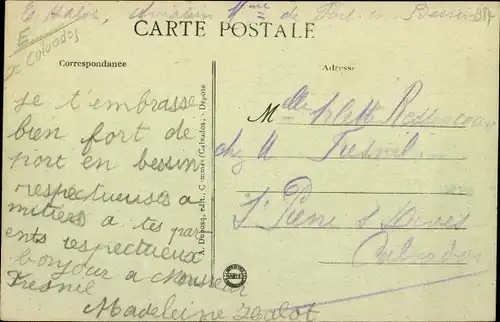 E Halot, Aviation Mme de Port en Bessin
E
Calvados
CARTE POSTALE
Correspondance
Adresse
je t'embrasse
bien fort de
port en bessin
respectueuses a
mitiers a tes par
ents respectueux
bonjour a Monsieur
Fresnil
Madeleine Halot
A. Dubosq, édit., Commes (Calvados). - Déposé
Melle Arlette
chez M Fresnil
St Pierre s Dives
Calvados